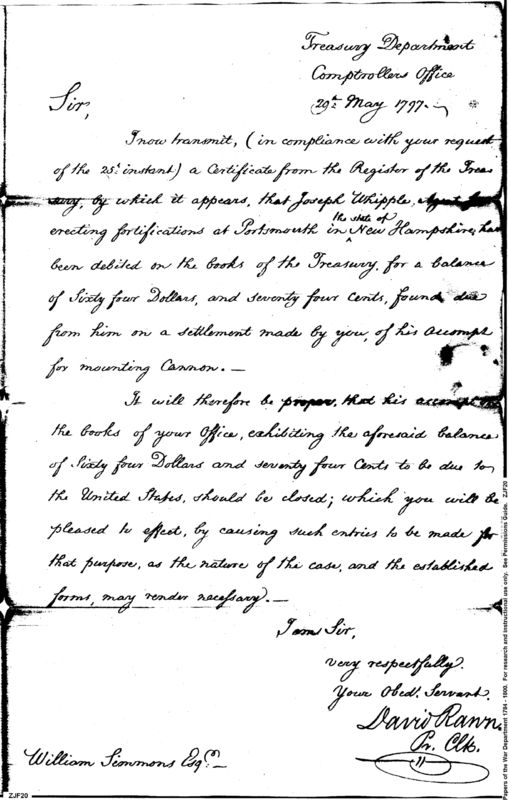 Treasury Department
Comptrollers Office
29th May 1797.
Sir,
I now transmit, (in compliance with your request
of the 25t instant) a Certificate from the Register of the Trea=
sury, by which it appears, that Joseph Whipple, Agent for
the state of
erecting fortifications at Portsmouth in ^ New Hampshire, has
been debited on the books of the Treasury, for a balance
of Sixty four Dollars, and seventy four Cents, found due
from him on a settlement made by you, of his Accompt
for mounting Cannon. —
It will therefore be proper, that his accompt on
the books of your Office, exhibiting the aforesaid balance
of Sixty four Dollars and seventy four Cents to be due to
the United States, should be closed; which you will be
pleased to effect, by causing such entries to be made for
that purpose, as the nature of the case, and the established
forms, may render necessary. —
I am Sir,
very respectfully.
Your Obedt. Servant.
David Rawn.
Pr. Clk.
William Simmons Esqr. —
ZJF20
Papers of the War Department 1784 - 1800. For research and instructional use only. See Permissions Guide. ZJF20